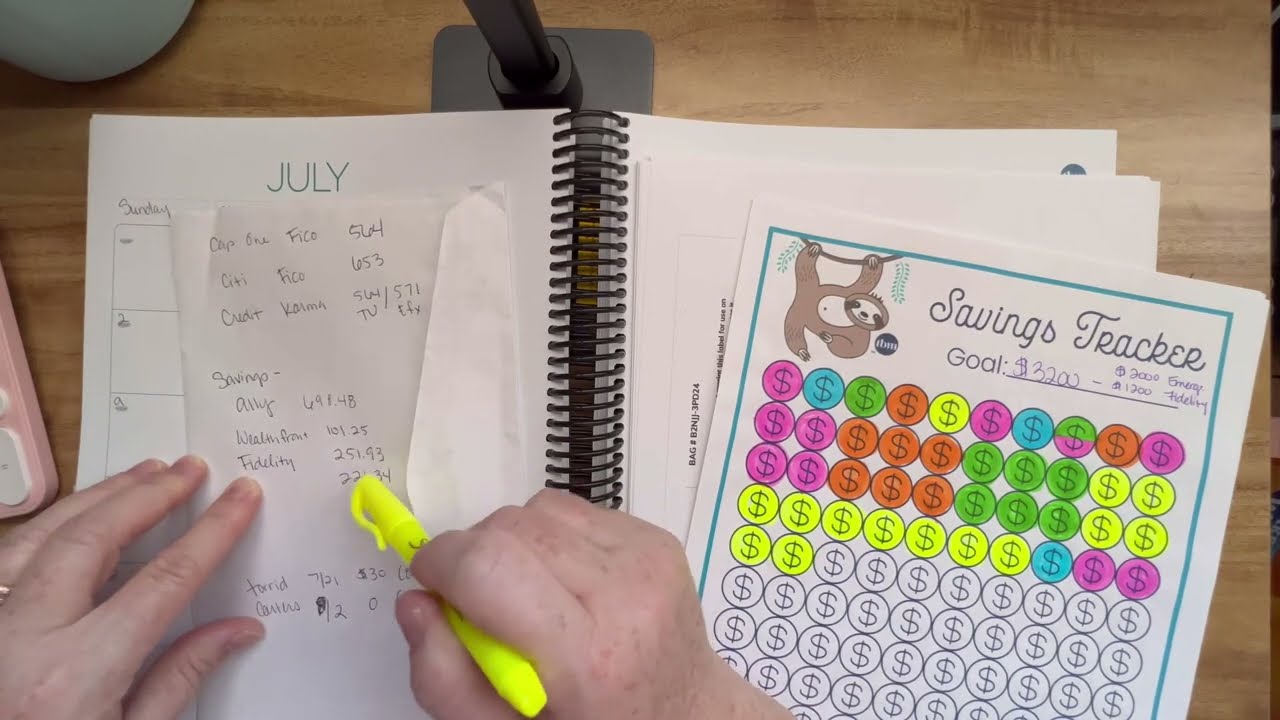 JULY
Sunday
Cap One Fico 564
Citi Fico 653
Credit Karma 564 / 571
TU Efx
2
9
Savings -
Ally 698.48
Wealthfront 101.25
Fidelity 251.93
torrid 7/21 $30
Carters /2 0
this label for use on
BAG # B2NJJ-3PD24
tbm
Savings Tracker
Goal: $3200 - $2000 Emerg.
$1200 Fidelity